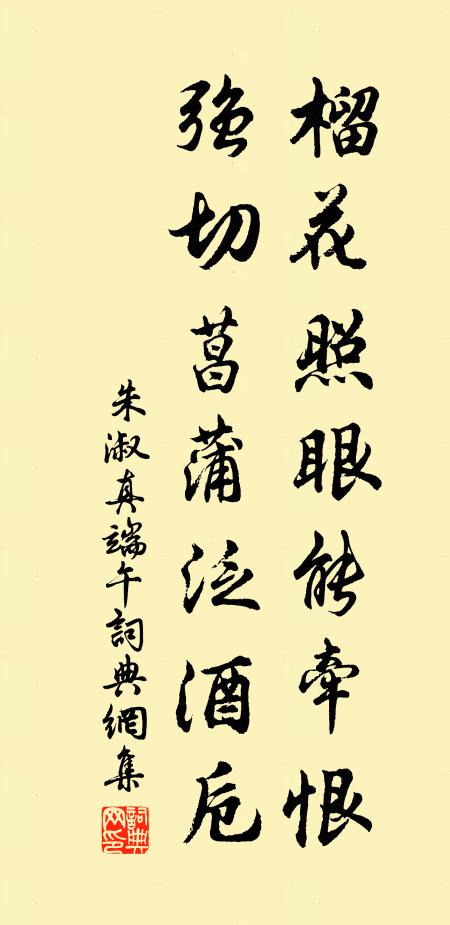 榴花照眼能牵恨
强切菖蒲泛酒卮
朱淑真端午詞典網集
詞典網印